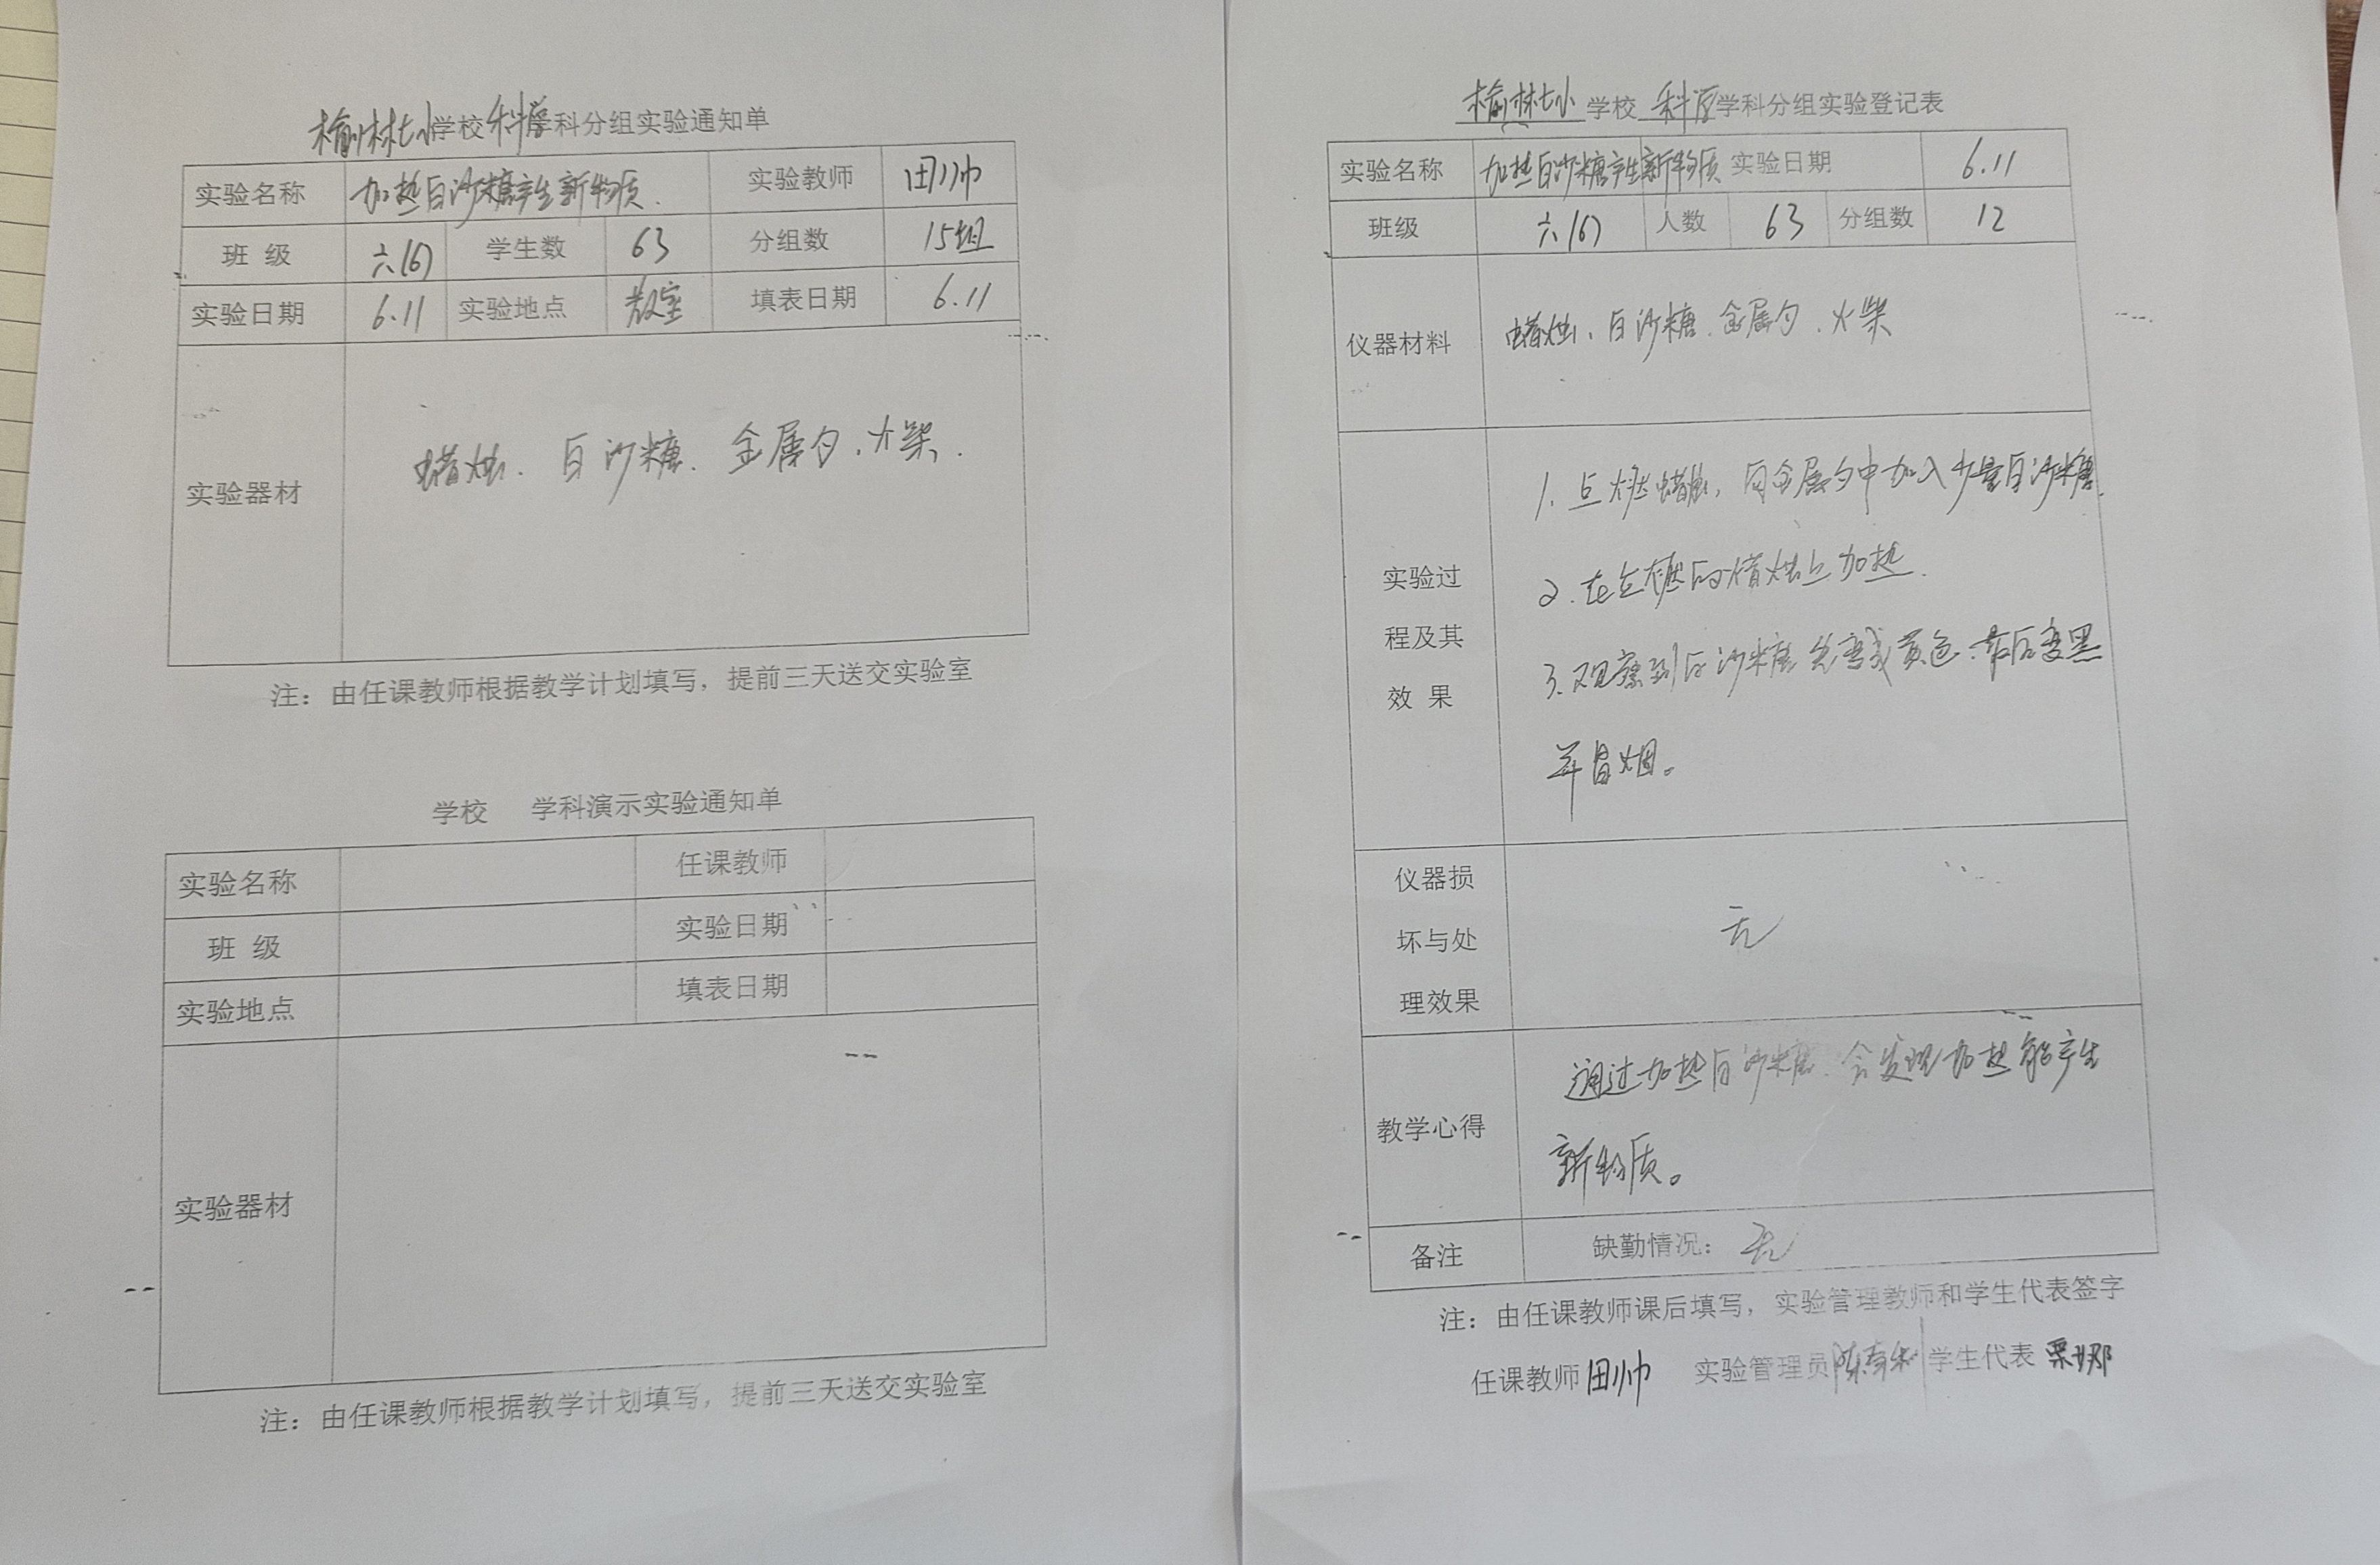 榆林七小学校科学学科分组实验通知单
实验名称 加热白沙糖产生新物质. 实验教师 田帅
班 级 六(6) 学生数 63 分组数 15组
实验日期 6.11 实验地点 教室 填表日期 6.11
实验器材 蜡烛、白沙糖、金属勺、火柴.
注：由任课教师根据教学计划填写，提前三天送交实验室
学校 学科演示实验通知单
实验名称 任课教师
班 级 实验日期
实验地点 填表日期
实验器材
注：由任课教师根据教学计划填写，提前三天送交实验室
榆林七小 学校 科学 学科分组实验登记表
实验名称 加热白沙糖产生新物质 实验日期 6.11
班级 六(6) 人数 63 分组数 12
仪器材料 蜡烛、白沙糖、金属勺、火柴
实验过
程及其
效 果
1. 点燃蜡烛，向金属勺中加入少量白沙糖.
2. 在点燃的蜡烛上加热.
3. 观察到白沙糖先变成黄色.最后变黑
并冒烟。
仪器损
坏与处
理效果
无
教学心得
通过加热白沙糖.会发现加热能产生
新物质。
备注 缺勤情况：无
注：由任课教师课后填写，实验管理教师和学生代表签字
任课教师 田帅 实验管理员 学生代表 栗娜